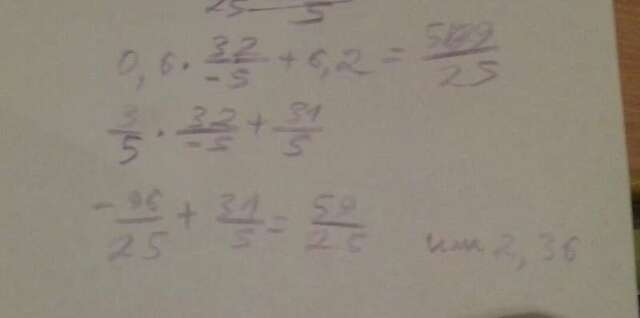 25 5
0,6 · 32/-5 + 6,2 = /25
3/5 · 32/-5 + 31/5
-96/25 + 31/5 = 59/25 или 2,36